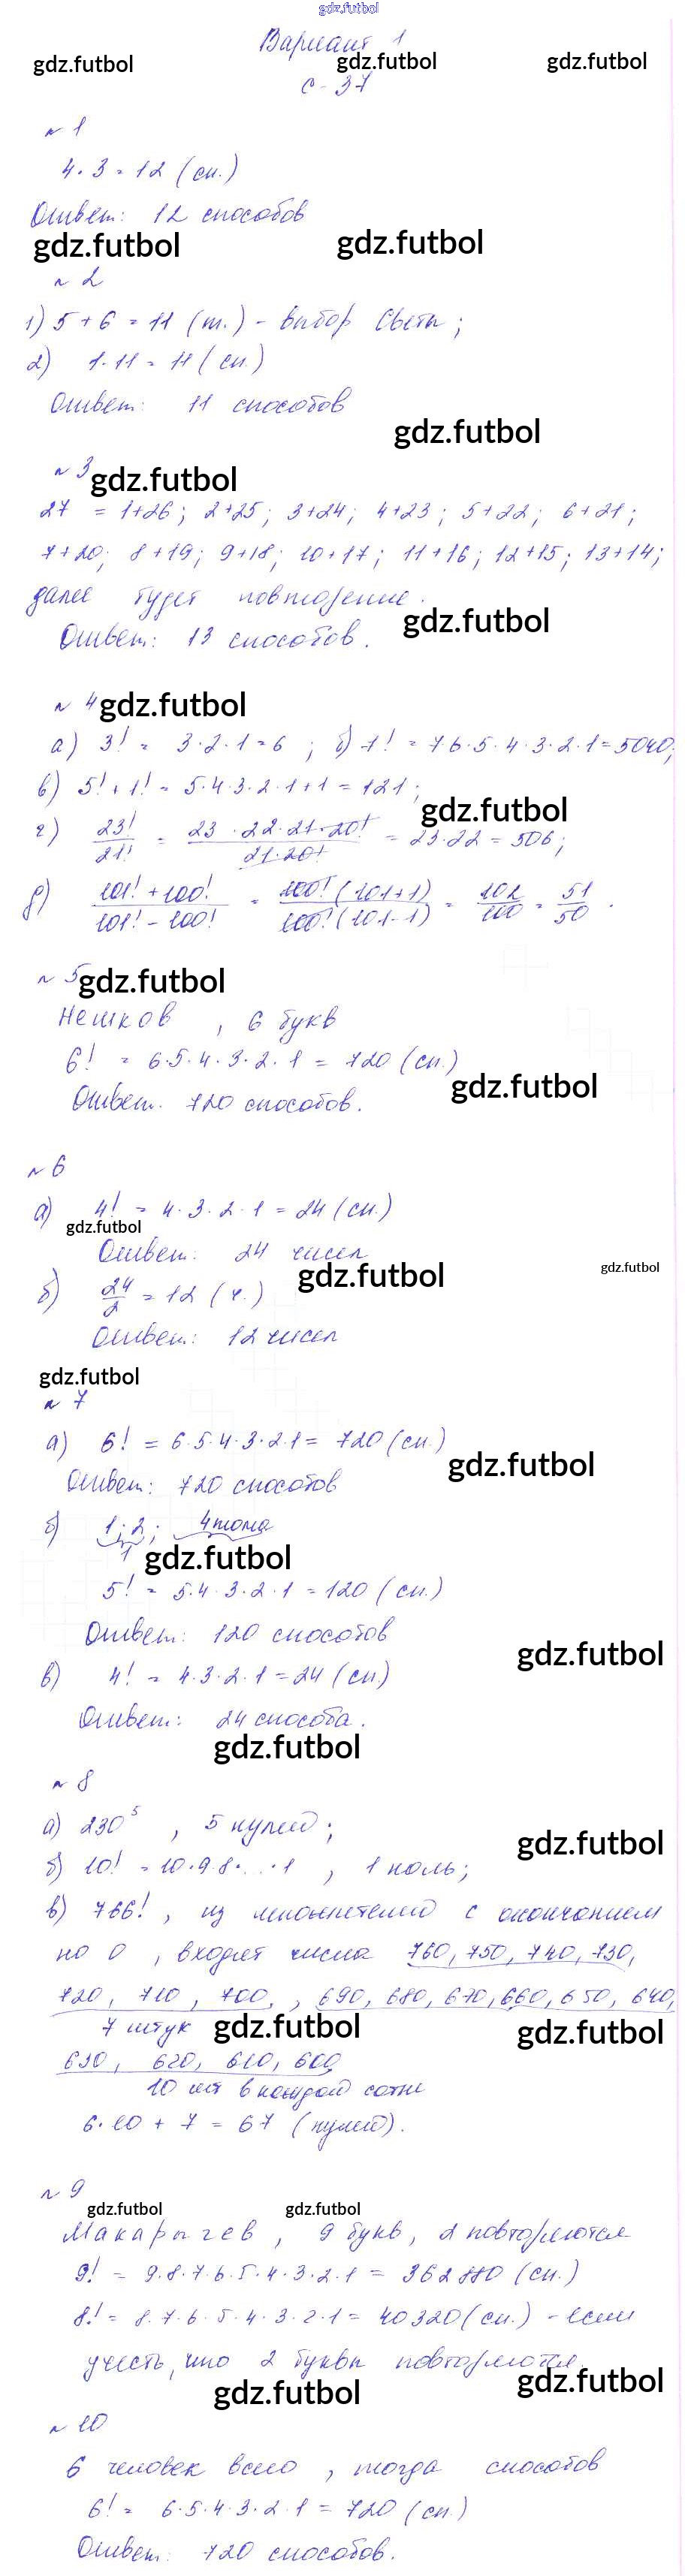 gdz.futbol
Вариант 1
gdz.futbol gdz.futbol gdz.futbol
С-37
№1
4·3=12 (сп.)
Ответ: 12 способов
gdz.futbol gdz.futbol
№2
1) 5+6=11 (т.) - выбор Светы;
2) 1·11=11 (сп.)
Ответ: 11 способов
gdz.futbol
№3 gdz.futbol
27 = 1+26; 2+25; 3+24; 4+23; 5+22; 6+21;
7+20; 8+19; 9+18; 10+17; 11+16; 12+15; 13+14;
далее будет повторение.
gdz.futbol
Ответ: 13 способов.
№4 gdz.futbol
а) 3! = 3·2·1=6; б) 7! = 7·6·5·4·3·2·1=5040;
в) 5!+1! = 5·4·3·2·1+1=121;
gdz.futbol
г) 23!/21! = 23·22·21·20!/21·20! = 23·22=506;
д) 101!+100!/101!-100! = 100!(101+1)/100!(101-1) = 102/100 = 51/50.
№5 gdz.futbol
Нешков, 6 букв
6! = 6·5·4·3·2·1 = 720 (сп.)
gdz.futbol
Ответ. 720 способов.
№6
а) 4! = 4·3·2·1 = 24 (сп.)
gdz.futbol
Ответ: 24 чисел
gdz.futbol gdz.futbol
б) 24/2 = 12 (ч.)
Ответ: 12 чисел
gdz.futbol
№7
а) 6! = 6·5·4·3·2·1 = 720 (сп.)
gdz.futbol
Ответ: 720 способов
б) 1; 2; 4 тома
1 gdz.futbol
5! = 5·4·3·2·1 = 120 (сп.)
Ответ: 120 способов
gdz.futbol
в) 4! = 4·3·2·1 = 24 (сп.)
Ответ: 24 способа.
gdz.futbol
№8
а) 230⁵, 5 нулей;
gdz.futbol
б) 10! = 10·9·8·...·1, 1 ноль;
в) 766!, из множителей с окончанием
на 0, входят числа 760, 750, 740, 730,
720, 710, 700, , 690, 680, 670, 660, 650, 640,
7 штук gdz.futbol gdz.futbol
630, 620, 610, 600
10 шт в каждой сотне
6·10 + 7 = 67 (нулей).
№9
gdz.futbol gdz.futbol
Макарычев, 9 букв, 2 повторяются
9! = 9·8·7·6·5·4·3·2·1 = 362880 (сп.)
8! = 8·7·6·5·4·3·2·1 = 40320 (сп.) - если
учесть, что 2 буквы повторяются.
gdz.futbol gdz.futbol
№10
6 человек всего, тогда способов
6! = 6·5·4·3·2·1 = 720 (сп.)
Ответ: 720 способов.